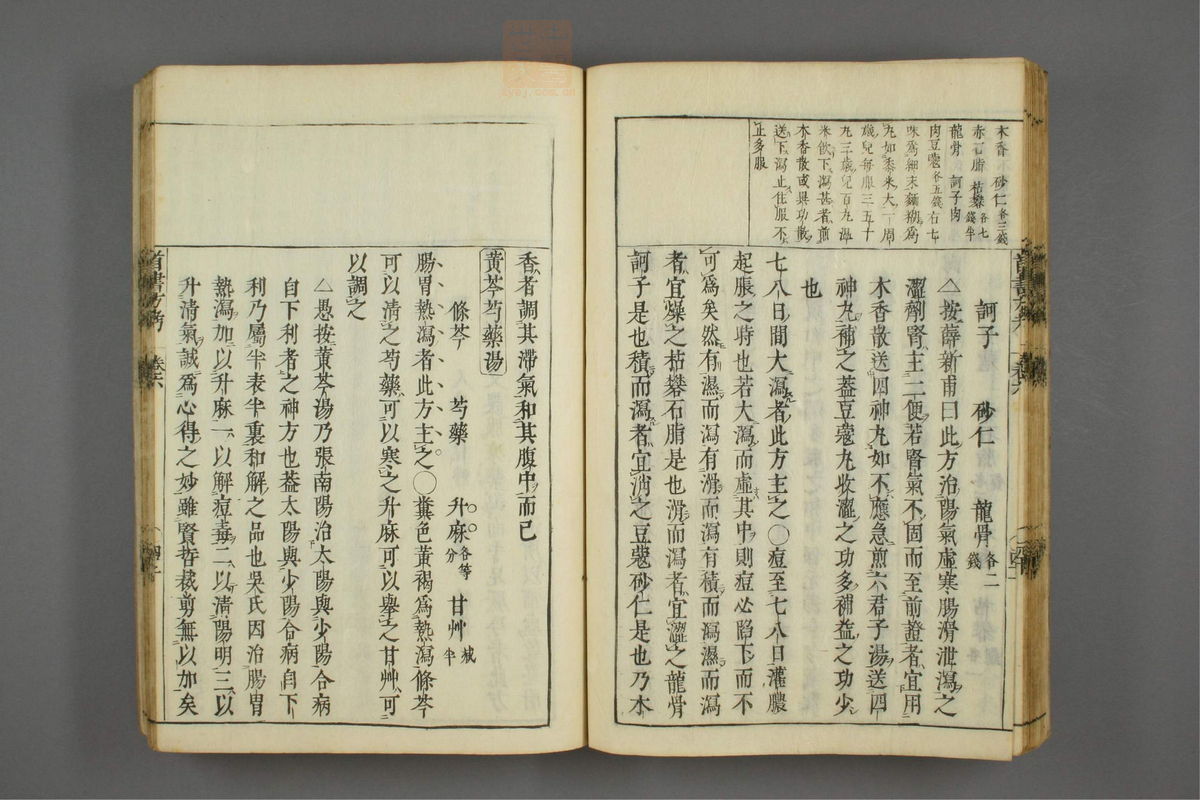 木香 砂仁各三錢
赤石脂 枯礬各七錢半
龍骨 訶子肉
肉豆蔻各五錢右七
味為細末麵糊為
丸如黍米大一周
歲兒每服三五十
丸三歲兒百丸溫
米飲下瀉甚者煎
木香散或異功散
送下瀉止住服不
止多服
訶子 砂仁 龍骨各二錢
△按薛新甫曰此方治陽氣虛寒腸滑泄瀉之
澀劑腎主二便若腎氣不固而至前證者宜用
木香散送四神丸如不應急煎六君子湯送四
神丸補之葢豆蔻丸收澀之功多補益之功少
也
七八日間大瀉者此方主之○痘至七八日灌膿
起脹之時也若大瀉而虛其中則痘必陷下而不
可為矣然有濕而瀉有滑而瀉有積而瀉濕而瀉
者宜燥之枯礬石脂是也滑而瀉者宜澀之龍骨
訶子是也積而瀉者宜消之豆蔻砂仁是也乃木
香者調其滯氣和其腹中而已
黃芩芍藥湯
條芩 芍藥 升麻各等分 甘艸減半
腸胃熱瀉者此方主之○糞色黃褐為熱瀉條芩
可以清之芍藥可以寒之升麻可以舉之甘艸可
以調之
△愚按黃芩湯乃張南陽治太陽與少陽合病
自下利者之神方也葢太陽與少陽合病自下
利乃屬半表半裏和解之品也吳氏因治腸胃
熱瀉加以升麻一以解痘毒二以清陽明三以
升清氣誠為心得之妙雖賢哲裁剪無以加矣
首書方考 卷六